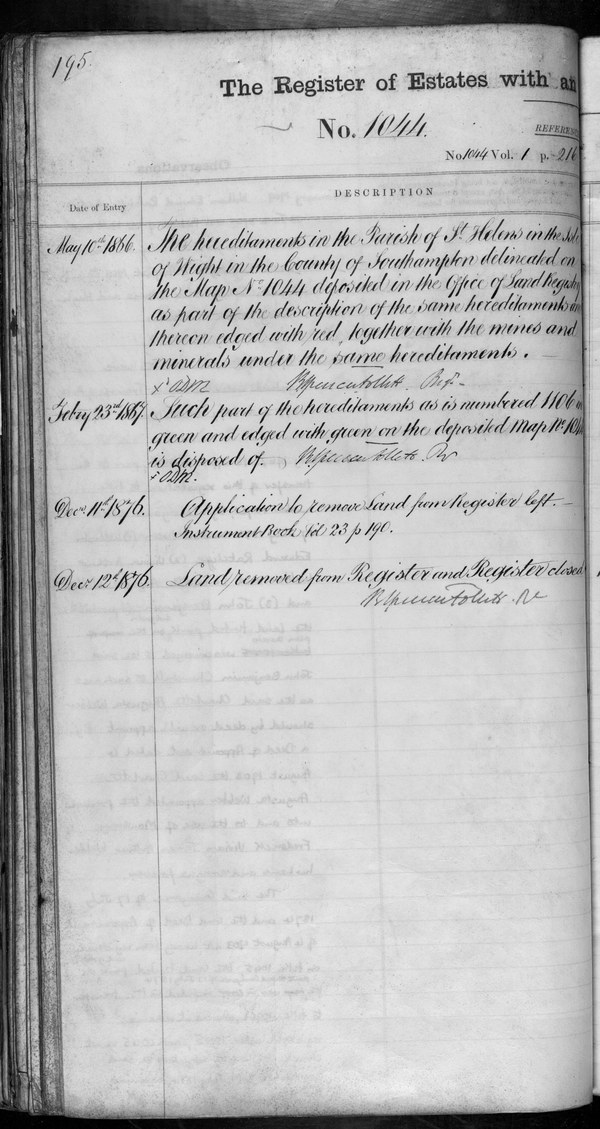 195.
The Register of Estates with an
No. 1044.
REFERENC
No 1044 Vol. 1 p. 216
Date of Entry
DESCRIPTION
May 10th 1866. The hereditaments in the Parish of St. Helens in the Isle
of Wight in the County of Southampton delineated on
the Map No. 1044 deposited in the Office of Land Registry
as part of the description of the same hereditaments and
thereon edged with red, together with the mines and
minerals under the same hereditaments.
Febry 23rd 1867. Such part of the hereditaments as is numbered 1106 in
green and edged with green on the deposited Map No. 1044
is disposed of.
Decr. 11th 1876. Application to remove Land from Register left.
Instrument Book Vol 23 p 190.
Decr. 12th 1876. Land removed from Register and Register closed